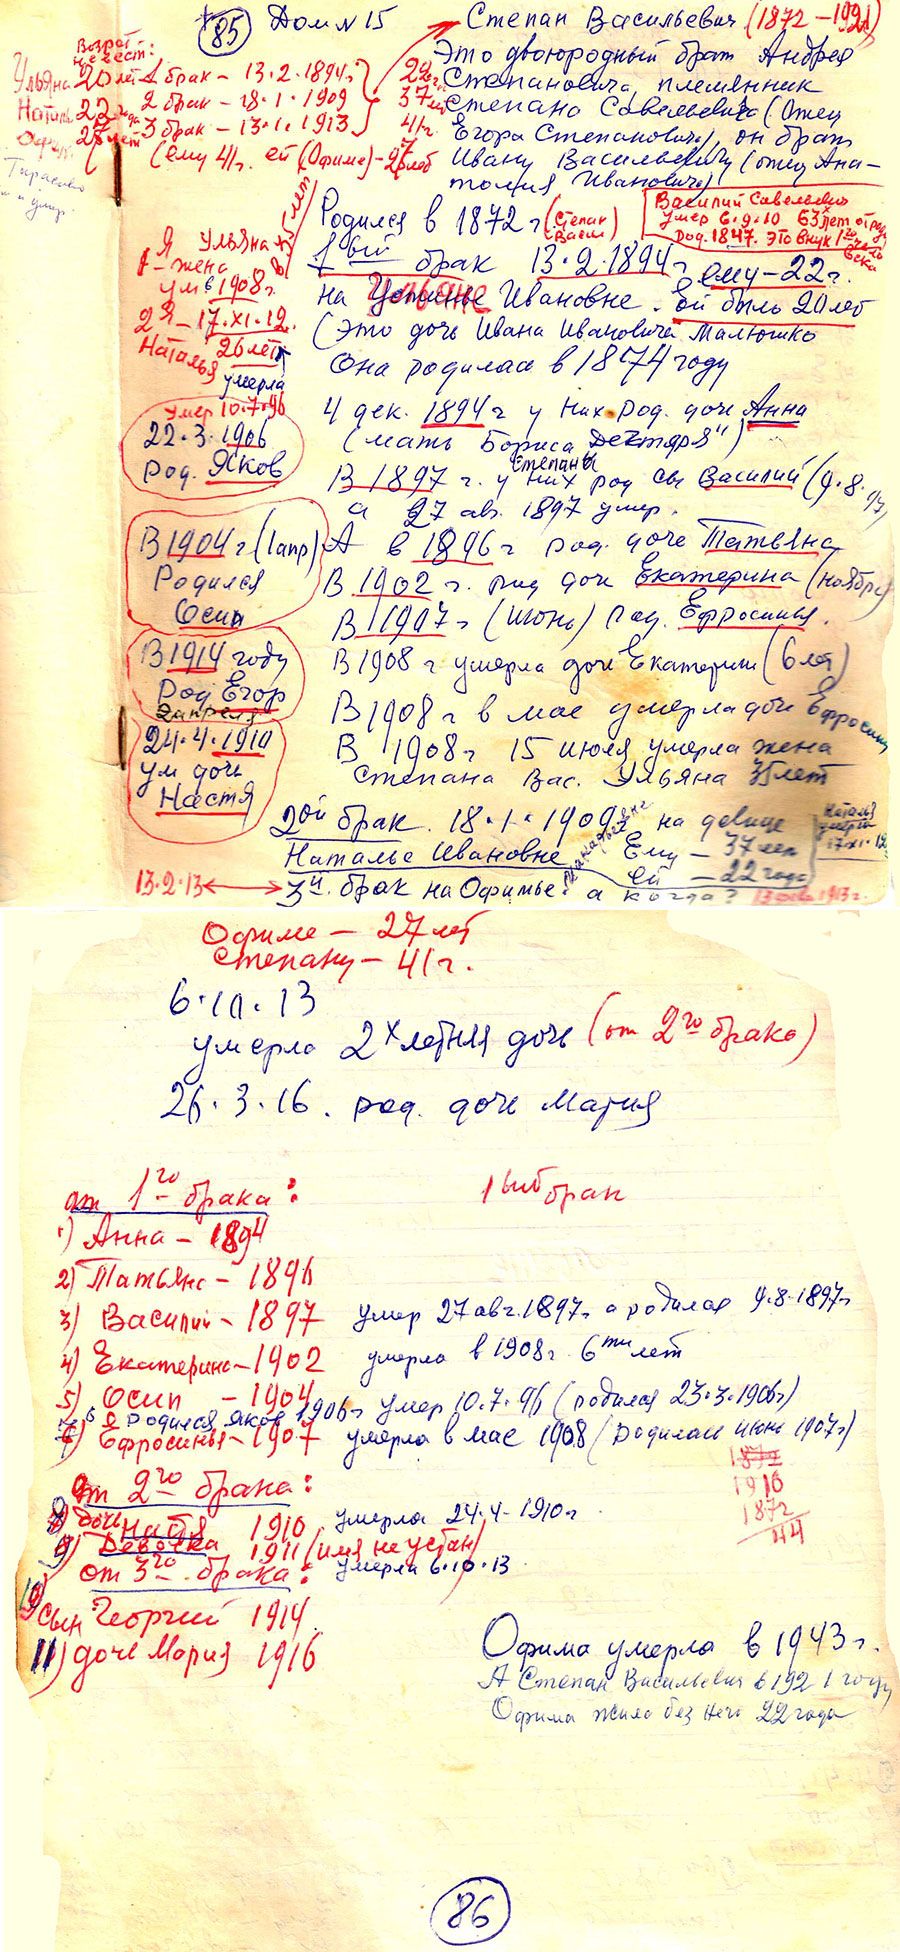 85 Дом № 15 Степан Васильевич (1872 – 1921)
Это двоюродный брат Андрея
Степановича, племянник
Степана Савельевича (отец
Егора Степановича), он брат
Ивану Васильевичу (отец Ана-
толия Ивановича)
Возраст невест:
Ульяна 20 лет 1 брак – 13.2.1894г 22
22 года 2 брак – 18.1.1909 37
27 лет 3 брак – 13.1.1913 41г.
(ему 41г. ей (Офиме) – 27 лет
Василий Савельевич
умер 6.9.10 63х лет от роду
род. 1847. Это внук
Родился в 1872 г (Степан Васил)
1ый брак 13.2.1894г ему – 22г.
на Ульяне Ивановне. ей было 20 лет
(Это дочь Ивана Ивановича Малюшко
Она родилась в 1874 году
4 дек. 1894 г у них род. дочь Анна
(мать Бориса "Дектяря")
В 1897 г. у них Степаны род сын Василий (9.8.
а 27 авг. 1897 умер.
А в 1896 г род. дочь Татьяна
В 1902 г. род дочь Екатерина (ноября)
В 1907 г (июнь) род. Ефросинья.
В 1908 г умерла дочь Екатерина (6 лет)
В 1908 г в мае умерла дочь Ефросинья
В 1908 г 15 июля умерла жена
Степана Вас. Ульяна 35 лет
2ой брак. 18.1.1909г на девице
Наталье Ивановне Ему – 37 лет
ей – 22 года
Наталья умерла 17.XI.12
13.2.13 3й. брак на Офимье. а когда? 1913г.
1я жена Ульяна в 35 лет
ум в 1908г.
2я – 17.XI.12.
Наталья 26 лет
умерла
умер 10.7.96
22.3.1906
род. Яков
В 1904 г (1 апр)
Родился
Осип
В 1914 году
Род Егор
2 апреля
24.4.1910
ум дочь
Настя
Офиме – 27 лет
Степану – 41г.
6.10.13
умерла 2х летняя дочь (от 2го брака)
26.3.16. род. дочь Мария
от 1го брака: 1ый брак
1) Анна – 1894
2) Татьяна – 1896
3) Василий – 1897 умер 27 авг. 1897г а родился 9.8.1897г
4) Екатерина – 1902 умерла в 1908г. 6ти лет
5) Осип – 1904
6 Родился Яков 1906г умер 10.7.96 (родился 23.3.1906г)
Ефросинья – 1907 умерла в мае 1908 (родилась июнь 1907г)
1872
1916
1872
44
от 2го брака:
8) дочь Настя 1910 умерла 24.4.1910г.
9) Девочка 1911 (имя не устан)
умерла 6.10.13
от 3го брака:
10) Сын Георгий 1914
11) дочь Мария 1916
Офима умерла в 1943 г.
А Степан Васильевич в 1921 году
Офима жила без него 22 года
86